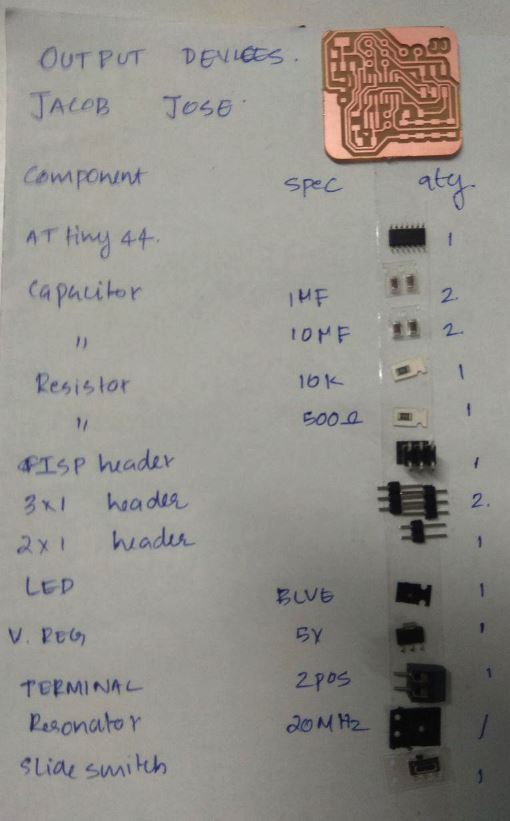 OUTPUT DEVICES.
JACOB JOSE
Component spec qty.
ATtiny 44. 1
Capacitor 1MF 2
" 10MF 2
Resistor 10K 1
" 500Ω 1
FISP header 1
3x1 header 2.
2x1 header 1
LED BLUE 1
V. REG 5V 1
TERMINAL 2pos 1
Resonator 20MHz 1
Slide switch 1